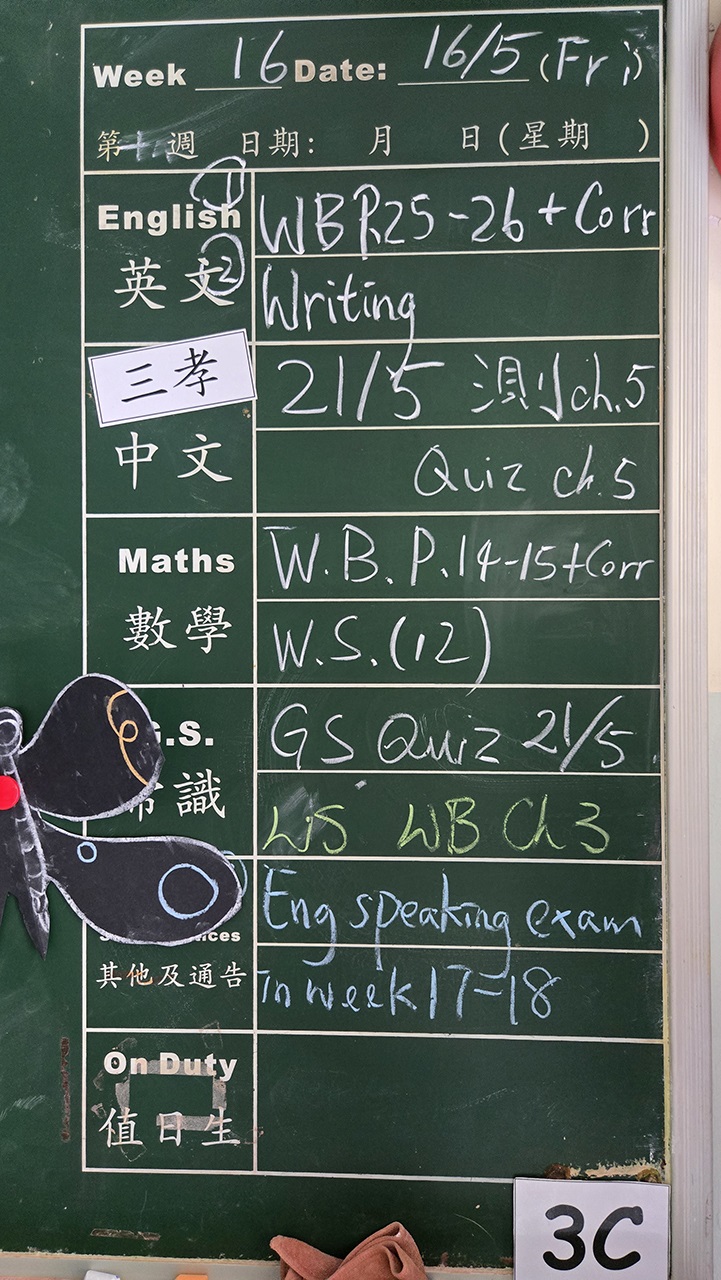 Week 16 Date: 16/5 (Fri)
第 週 日期: 月 日(星期 )
English ① WB P.25-26 + Corr
英文 ② Writing
三孝 21/5 測 ch.5
中文 Quiz ch.5
Maths W.B. P.14-15+Corr
數學 W.S.(12)
G.S. GS Quiz 21/5
常識 WS WB Ch 3
Eng speaking exam
其他及通告 in week 17-18
On Duty
值日生
3C